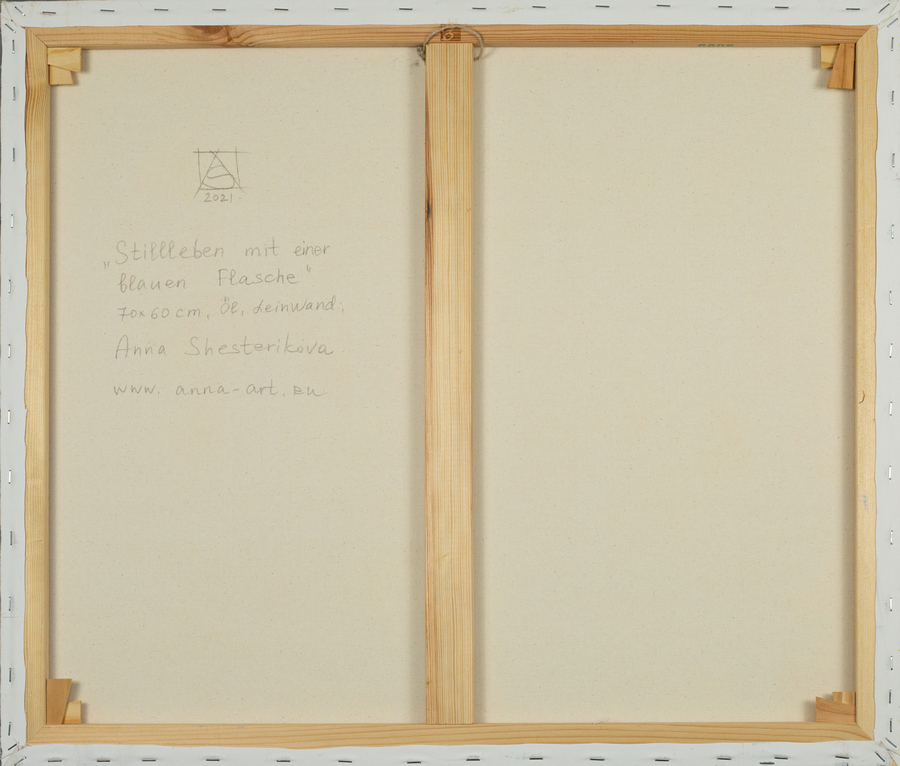 AS
2021
„Stillleben mit einer
blauen Flasche"
70x60 cm, Öl, Leinwand.,
Anna Shesterikova
www. anna-art.eu